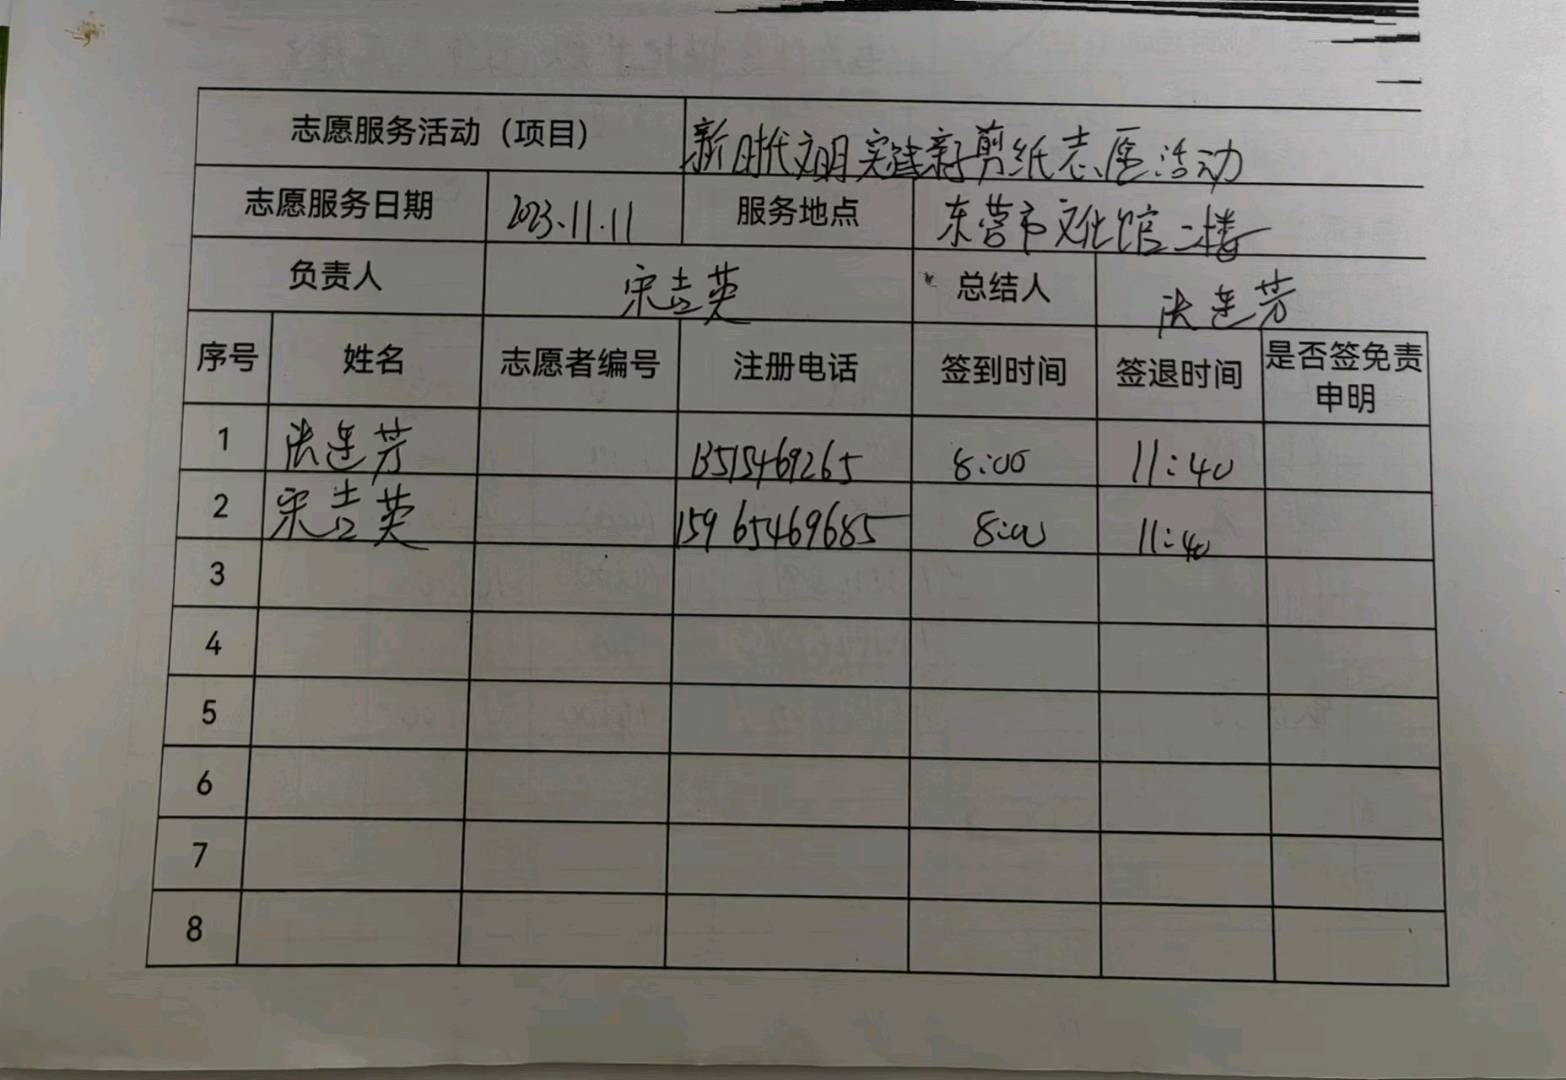 志愿服务活动（项目） 新时代文明实践剪纸志愿活动
志愿服务日期 2023.11.11 服务地点 东营市文化馆二楼
负责人 宋吉英 总结人 法连芳
序号 姓名 志愿者编号 注册电话 签到时间 签退时间 是否签免责申明
1 法连芳 13515469265 8:00 11:40
2 宋吉英 15965469685 8:00 11:40
3
4
5
6
7
8